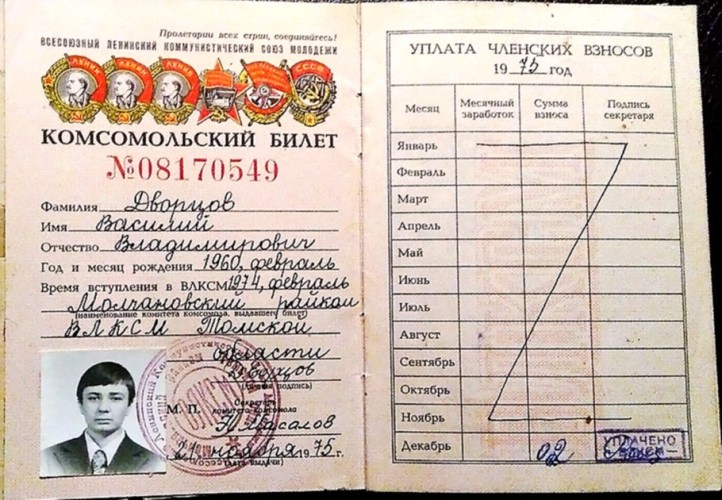 Пролетарии всех стран, соединяйтесь!
ВСЕСОЮЗНЫЙ ЛЕНИНСКИЙ КОММУНИСТИЧЕСКИЙ СОЮЗ МОЛОДЕЖИ
КОМСОМОЛЬСКИЙ БИЛЕТ
№08170549
Фамилия Дворцов
Имя Василий
Отчество Владимирович
Год и месяц рождения 1960, февраль
Время вступления в ВЛКСМ 1974, февраль
Молчановский райком
(наименование комитета комсомола, выдавшего билет)
ВЛКСМ Томской
области
(личная подпись)
М. П. Секретарь
комитета комсомола
21 ноября 1975 г.
(дата выдачи)
УПЛАТА ЧЛЕНСКИХ ВЗНОСОВ
1975 год
Месяц Месячный заработок Сумма взноса Подпись секретаря
Январь
Февраль
Март
Апрель
Май
Июнь
Июль
Август
Сентябрь
Октябрь
Ноябрь
Декабрь 02 УПЛАЧЕНО